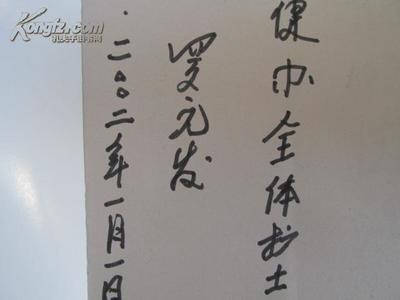 健办全体护士
罗元发
二〇〇二年一月一日
Kongfz.com
孔夫子旧书网